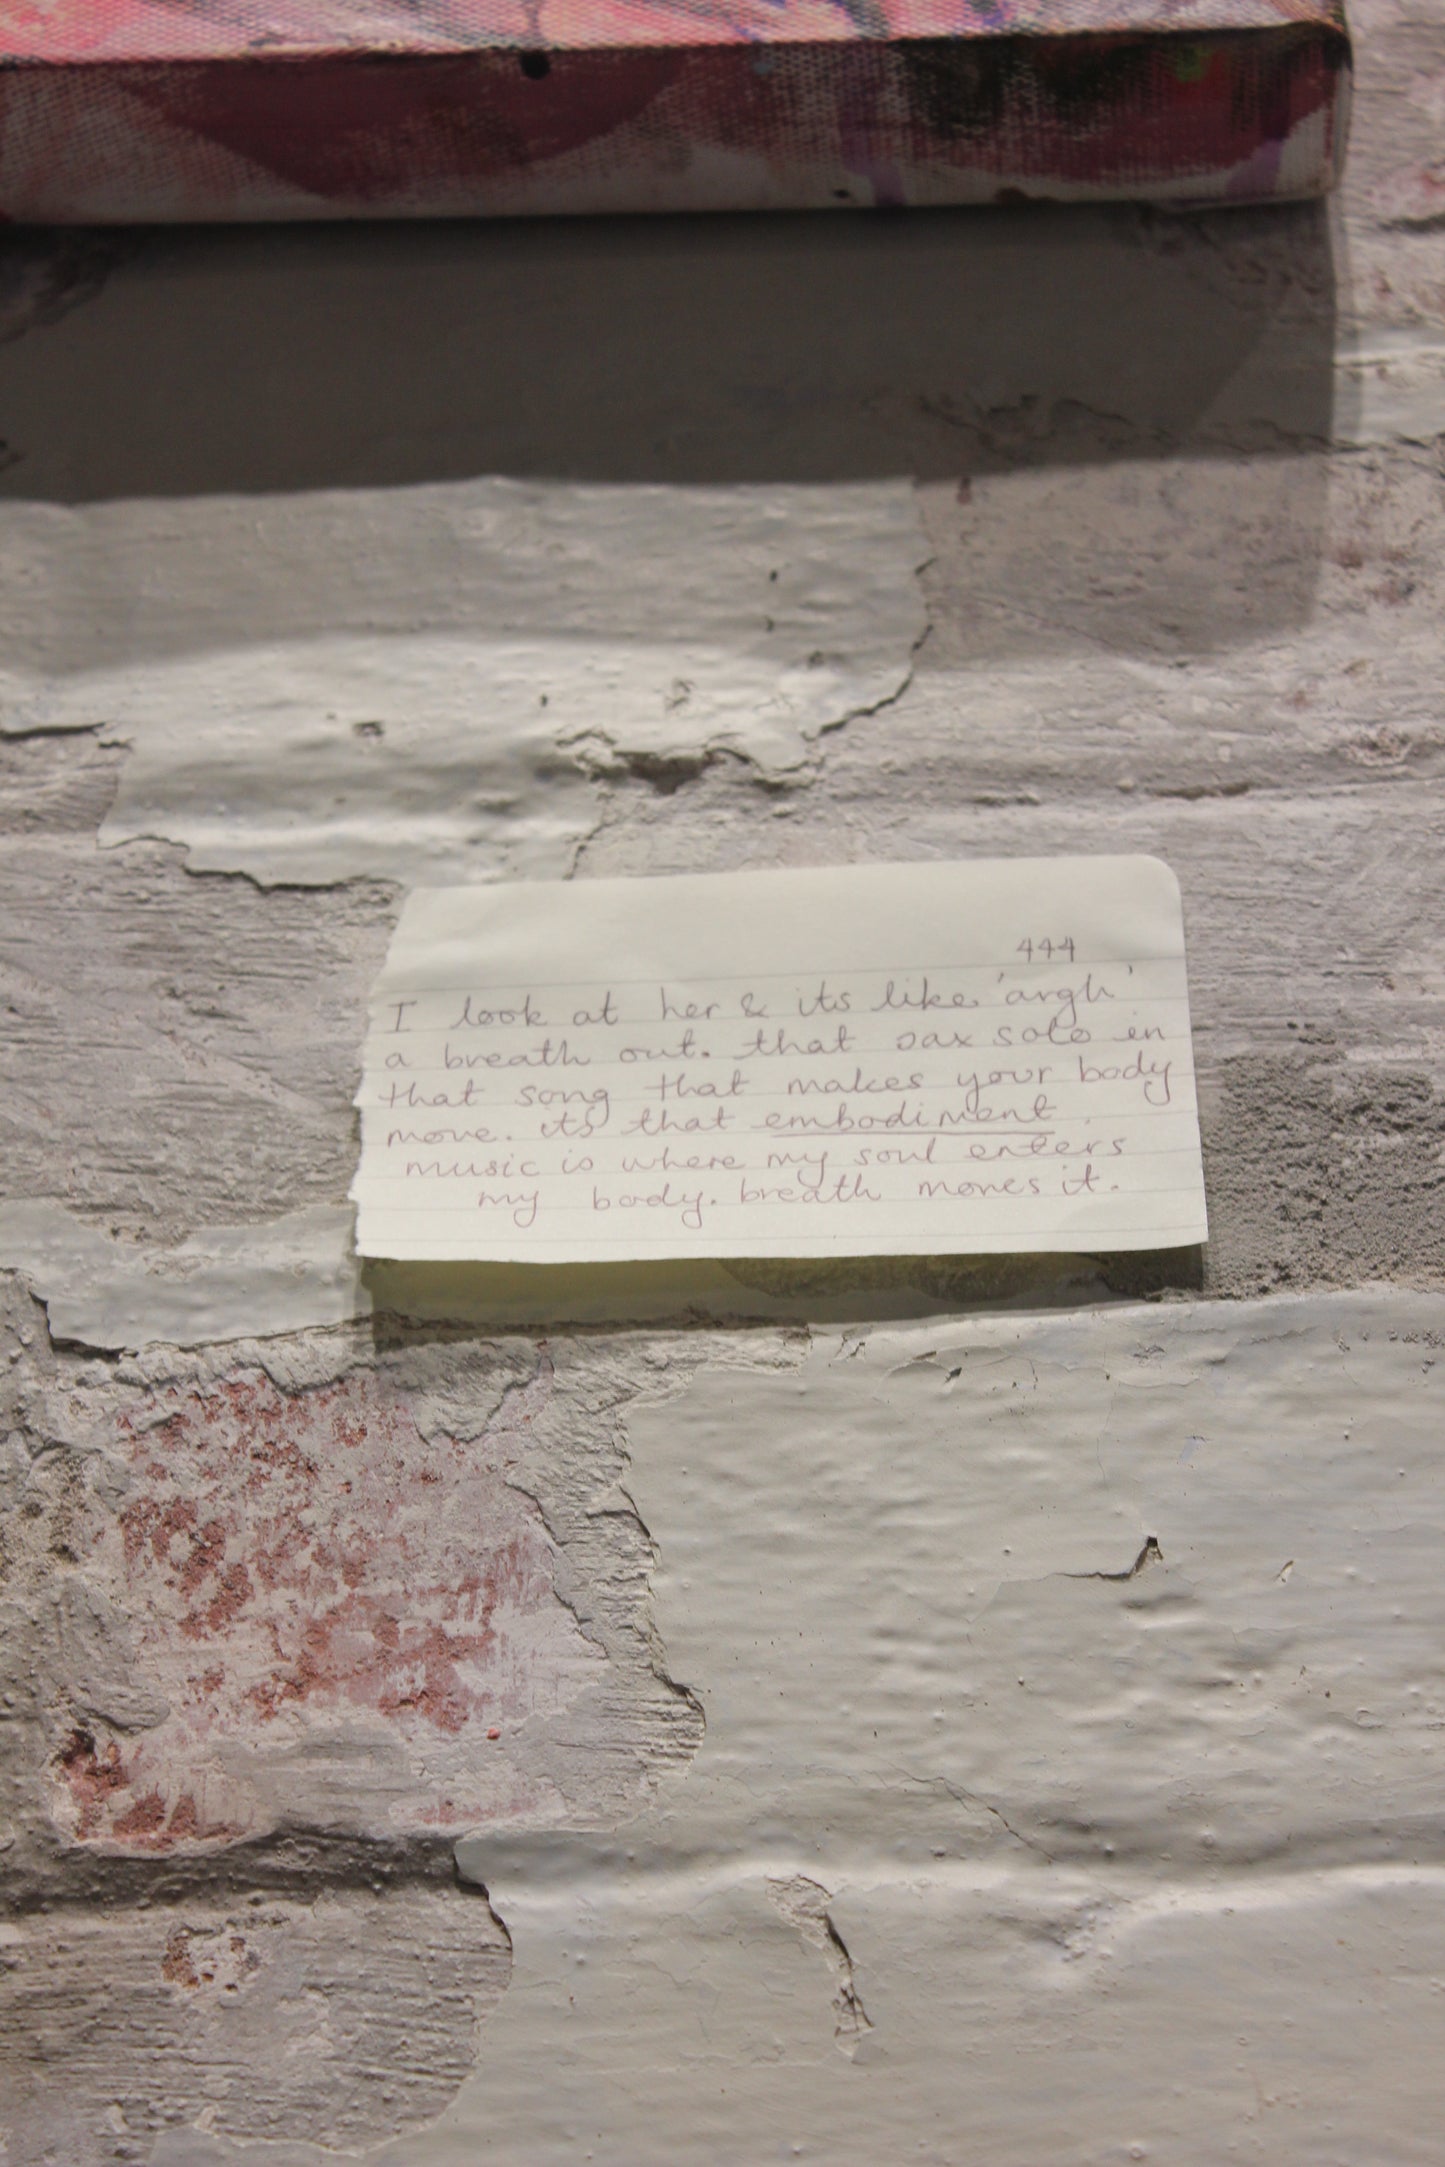 444
I look at her & its like 'argh'
a breath out. that sax solo in
that song that makes your body
move. its that embodiment.
music is where my soul enters
my body. breath moves it.